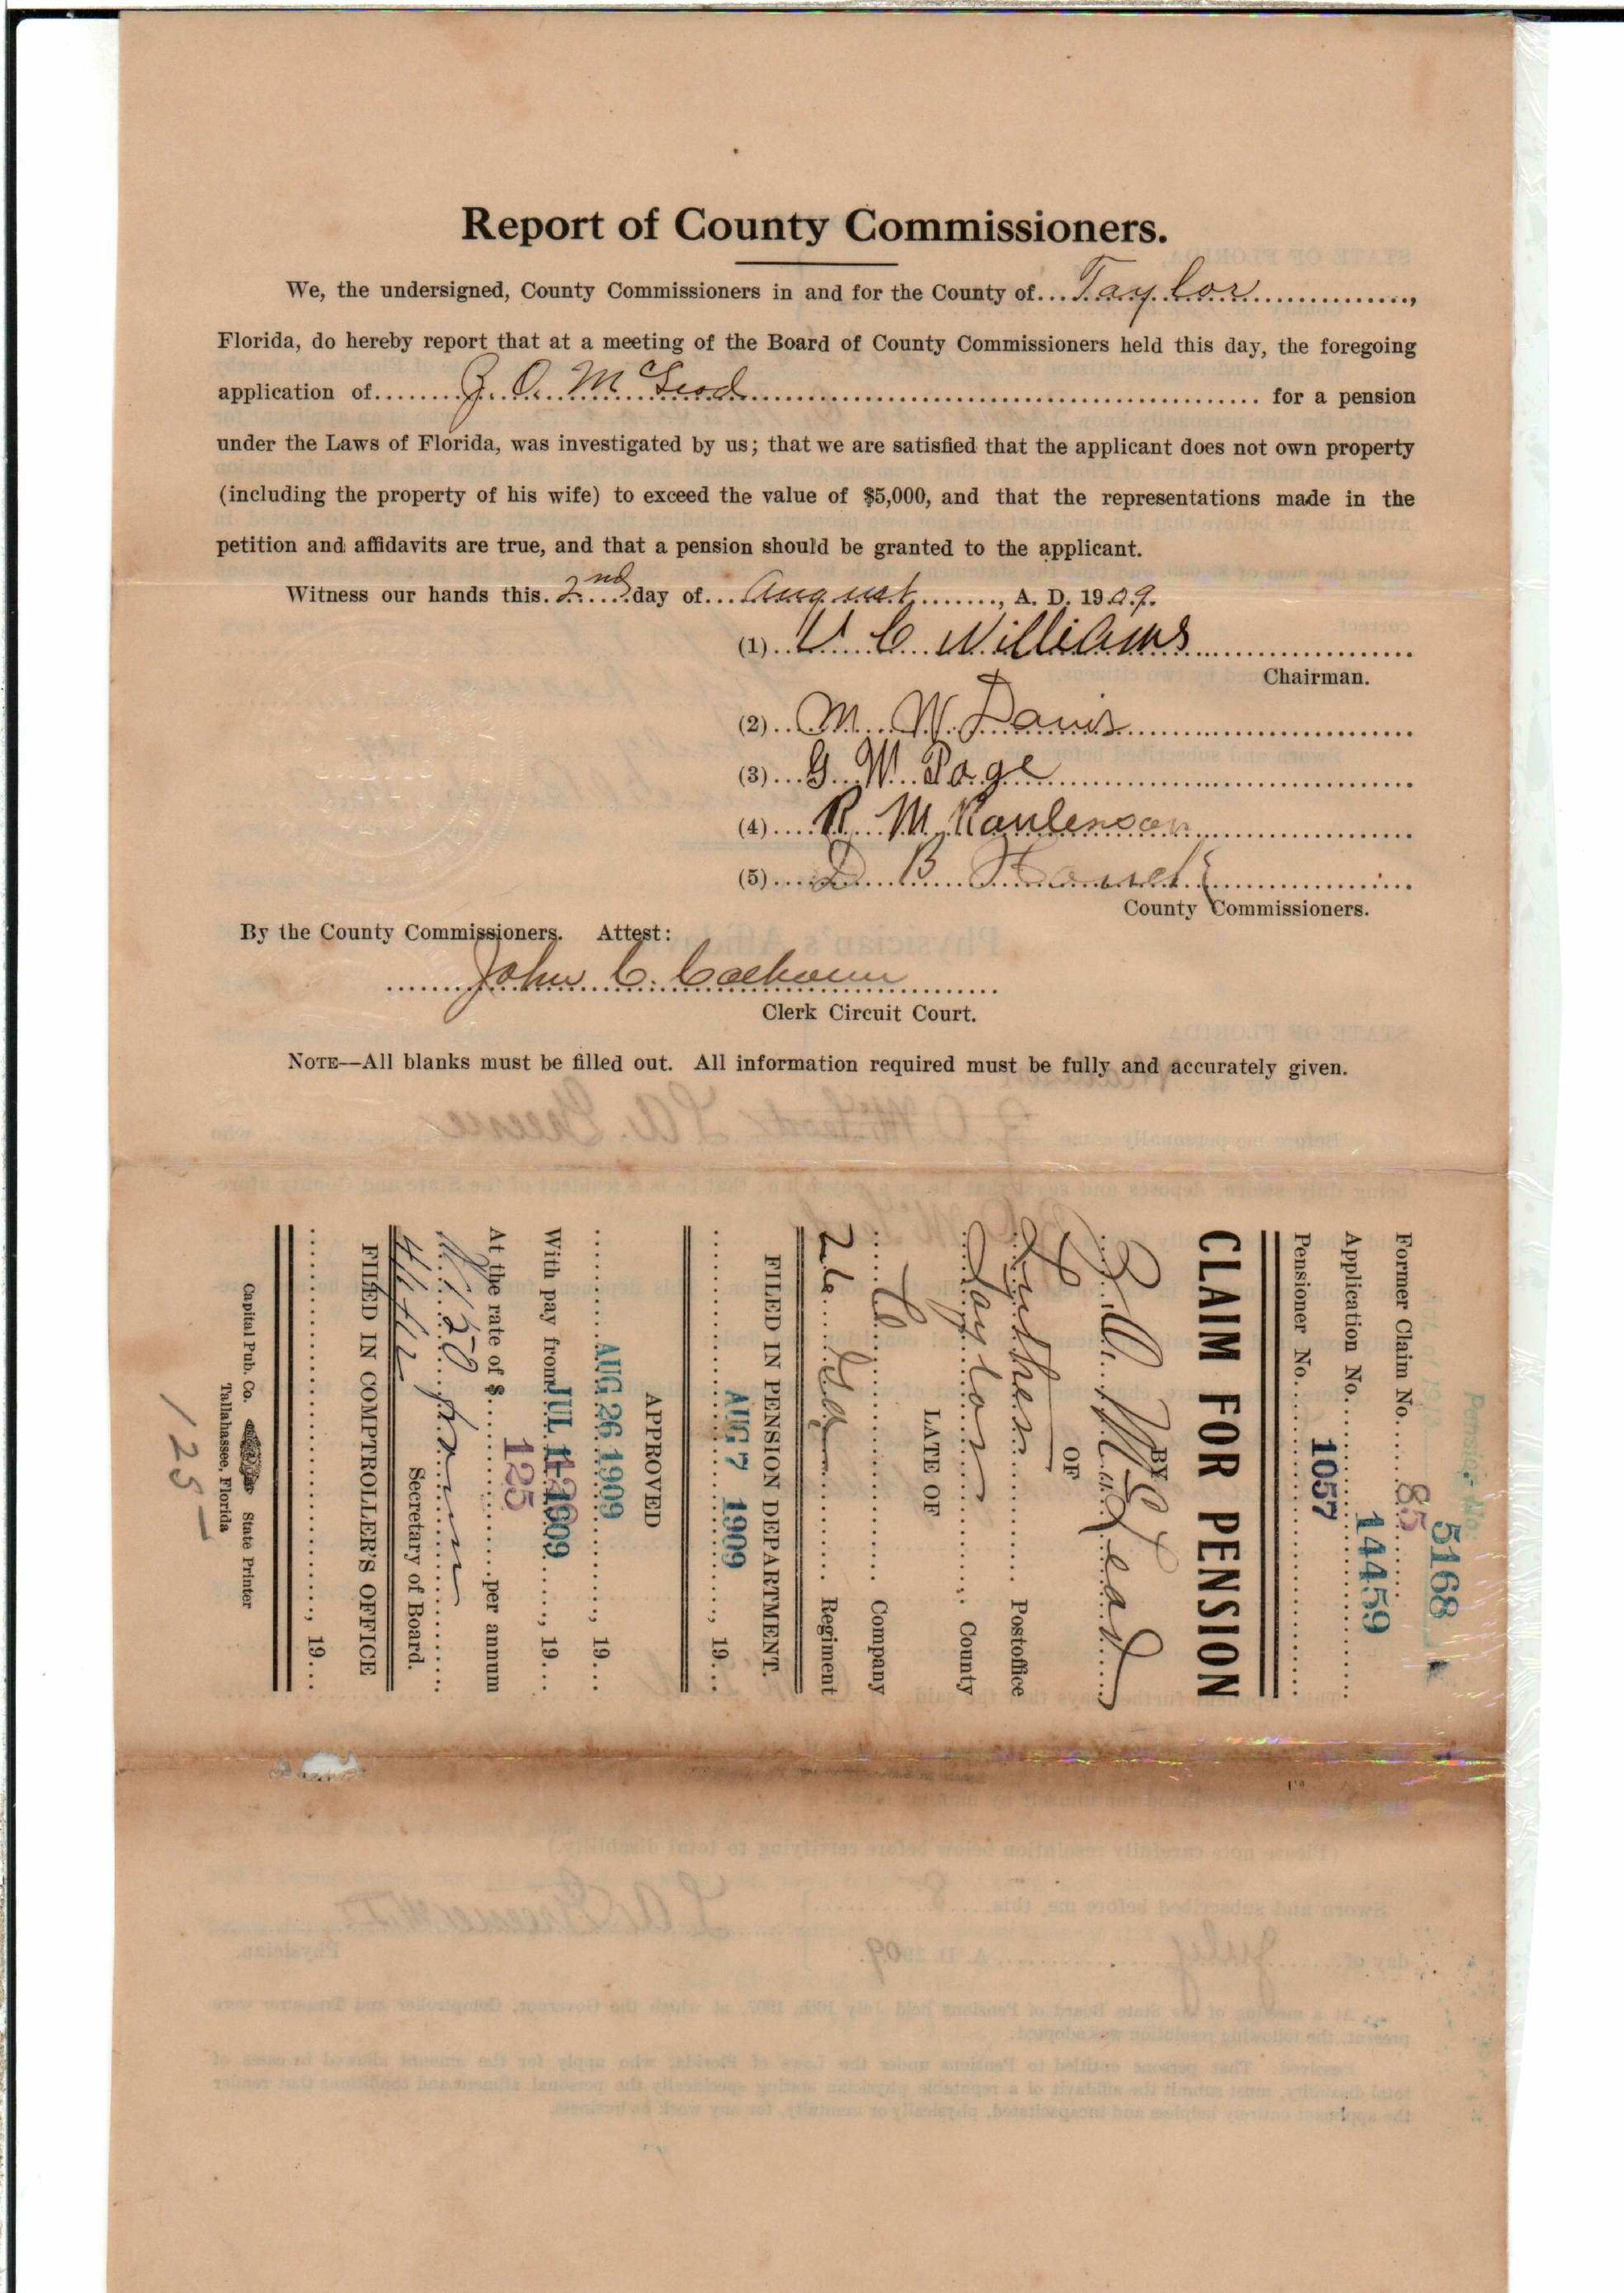 Report of County Commissioners.
We, the undersigned, County Commissioners in and for the County of Taylor,
Florida, do hereby report that at a meeting of the Board of County Commissioners held this day, the foregoing
application of O. McLeod for a pension
under the Laws of Florida, was investigated by us; that we are satisfied that the applicant does not own property
(including the property of his wife) to exceed the value of $5,000, and that the representations made in the
petition and affidavits are true, and that a pension should be granted to the applicant.
Witness our hands this 2nd day of August, A. D. 1909.
(1) C Williams
Chairman.
(2) M. W. Davis
(3) G. W. Page
(4) R. M.
(5) D B
County Commissioners.
By the County Commissioners. Attest:
John C. Calhoun
Clerk Circuit Court.
NOTE—All blanks must be filled out. All information required must be fully and accurately given.
Pension No.
5168
Former Claim No. 85
Application No. 14459
Pensioner No. 1057
CLAIM FOR PENSION
BY
McLeod
OF
Postoffice
Taylor County
LATE OF
Company
26 Ga Regiment
FILED IN PENSION DEPARTMENT.
AUG 7 1909, 19
APPROVED
AUG 26 1909, 19
With pay from JUL 1909, 19
At the rate of $ 125 per annum
150
Secretary of Board.
FILED IN COMPTROLLER'S OFFICE
, 19
Capital Pub. Co. State Printer
Tallahassee, Florida
125—